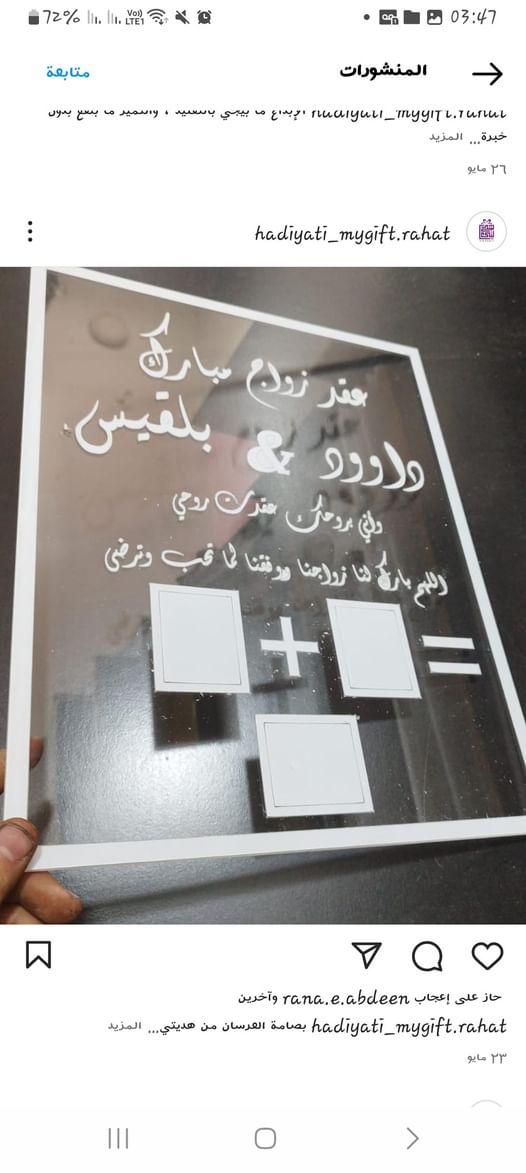 03:47
72% Vo) LTE1
المنشورات
متابعة
hadiyati_mygift.rahat الإبداع ما بيجي بالتقليد ، والتميز ما بقع بدون
خبرة... المزيد
٢٦ مايو
hadiyati_mygift.rahat
عقد زواج مبارك
داوود & بلقيس
وأني بروحك عقدت روحي
اللهم بارك لنا زواجنا ووفقنا لما تحب وترضى
+ =
حاز على إعجاب rana.e.abdeen وآخرين
hadiyati_mygift.rahat بصامة الفرسان من هديتي... المزيد
٢٣ مايو